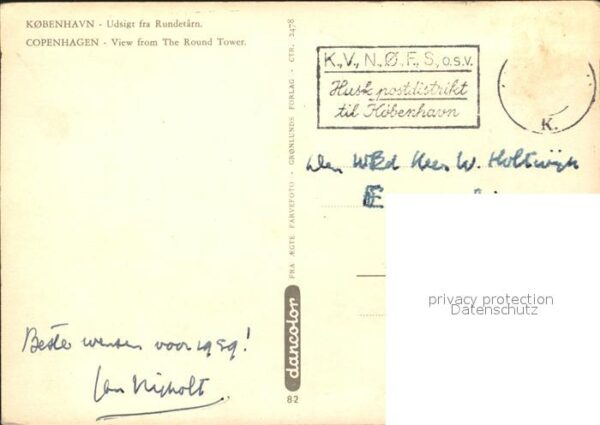 KØBENHAVN - Udsigt fra Rundetårn.
COPENHAGEN - View from The Round Tower.
FRA ÆGTE FARVEFOTO - GRØNLUNDS FORLAG - CTR. 2478
dancolor
82
K., V., N., Ø., F., S., o.s.v.
Husk postdistrikt
til København
K.
Den WEd Heer W. Holtwijk
Beste wensen voor 1959!
Jan Nijholt
privacy protection
Datenschutz